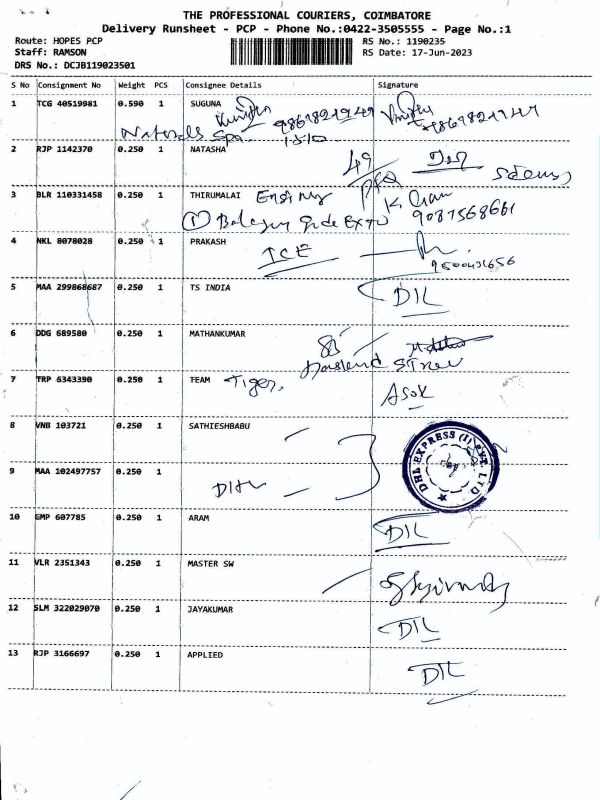 THE PROFESSIONAL COURIERS, COIMBATORE
Delivery Runsheet - PCP - Phone No.:0422-3505555 - Page No.:1
Route: HOPES PCP
RS No.: 1190235
Staff: RAMSON
RS Date: 17-Jun-2023
DRS No.: DCJB119023501
S No Consignment No Weight PCS Consignee Details Signature
1 TCG 40519981 0.590 1 SUGUNA
Naturals Spa.
2 RJP 1142370 0.250 1 NATASHA
49
3 BLR 110331458 0.250 1 THIRUMALAI
9087568661
4 NKL 8078028 0.250 1 PRAKASH
ICE
5 MAA 299868687 0.250 1 TS INDIA
DIL
6 DDG 689580 0.250 1 MATHANKUMAR
7 TRP 6343390 0.250 1 TEAM Tiger.
Asok
8 VNB 103721 0.250 1 SATHIESHBABU
DHL EXPRESS (I) PVT. LTD
9 MAA 102497757 0.250 1
10 GMP 607785 0.250 1 ARAM
DIL
11 VLR 2351343 0.250 1 MASTER SW
12 SLM 322029070 0.250 1 JAYAKUMAR
DIL
13 RJP 3166697 0.250 1 APPLIED
DIL